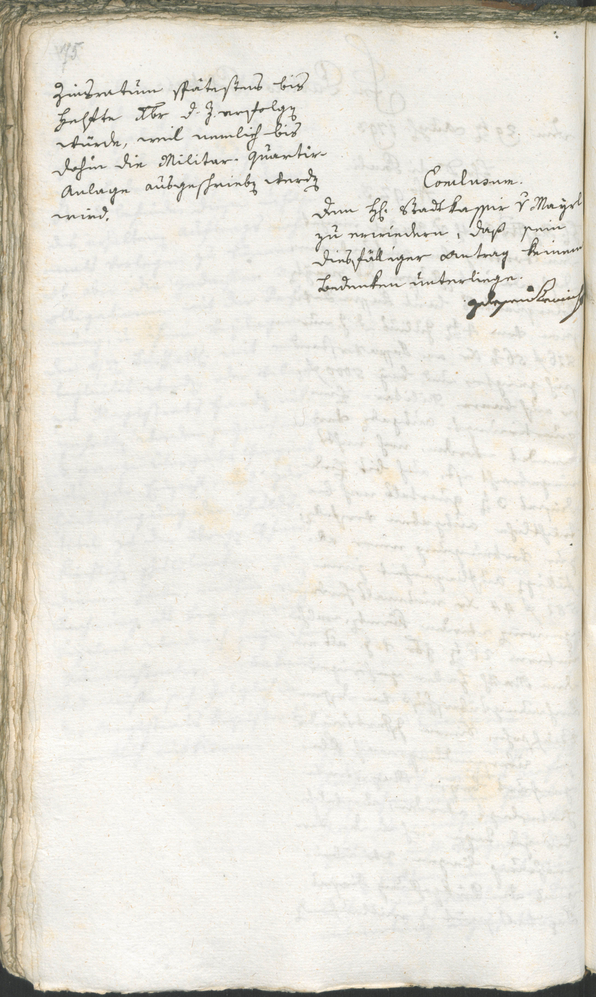 75
Zinsratum spätestens bis
Helfte Xbr d. J. erfolgen
würde, weil nemlich bis
dahin die Militar-Quartir-
Anlage ausgeschrieben werden
wird.
Conclusum.
Dem H: Stadtkassir v Mayrl
zu erwiedern, daß sein
diesfälliger Antrag keinem
Bedenken unterliege.